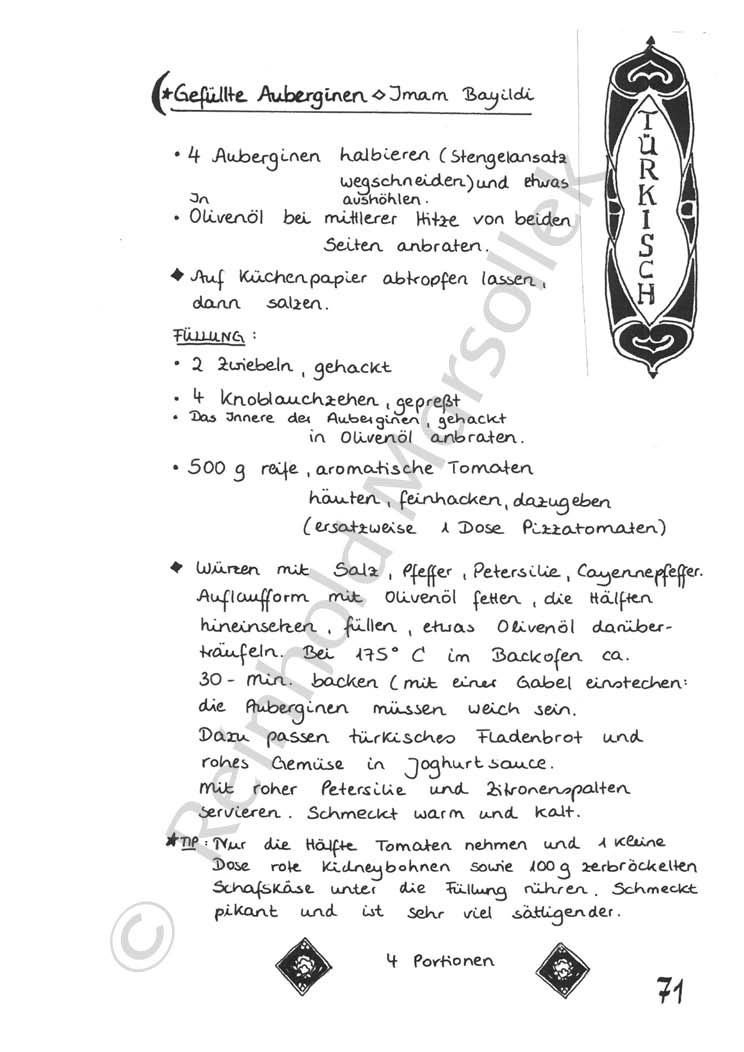 Gefüllte Auberginen ◇ Imam Bayildi
TÜRKISCH
• 4 Auberginen halbieren (Stengelansatz
wegschneiden) und etwas
aushöhlen.
• In Olivenöl bei mittlerer Hitze von beiden
Seiten anbraten.
◆ Auf Küchenpapier abtropfen lassen,
dann salzen.
FÜLLUNG:
• 2 Zwiebeln, gehackt
• 4 Knoblauchzehen, gepreßt
• Das Innere der Auberginen, gehackt
in Olivenöl anbraten.
• 500 g reife, aromatische Tomaten
häuten, feinhacken, dazugeben
(ersatzweise 1 Dose Pizzatomaten)
◆ Würzen mit Salz, Pfeffer, Petersilie, Cayennepfeffer.
Auflaufform mit Olivenöl fetten, die Hälften
hineinsetzen, füllen, etwas Olivenöl darüber-
träufeln. Bei 175° C im Backofen ca.
30 - min. backen (mit einer Gabel einstechen:
die Auberginen müssen weich sein.
Dazu passen türkisches Fladenbrot und
rohes Gemüse in Joghurtsauce.
Mit roher Petersilie und Zitronenspalten
servieren. Schmeckt warm und kalt.
★ TIP: Nur die Hälfte Tomaten nehmen und 1 kleine
Dose rote Kidneybohnen sowie 100 g zerbröckelten
Schafskäse unter die Füllung rühren. Schmeckt
pikant und ist sehr viel sättigender.
4 Portionen
71
© Reinhold Marsollek